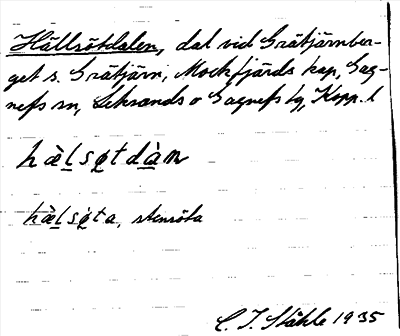 Hällsötdalen, dal vid Gråtjärnber-
get s. Gråtjärn, Mockfjärds kap, Gag-
nefs sn, Leksands o Gagnefs tg, Kopp. l
hὲlsøtdàn
hὲlsø̀ta, stensöta
C. I. Ståhle 1935